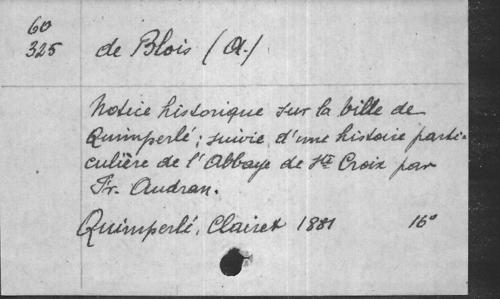 60
325 de Blois (A.)
Notice historique sur la ville de
Quimperlé; suivie d'une histoire parti-
culière de l'Abbaye de Ste Croix par
Fr. Audran.
Quimperlé, Clairet 1881 16°